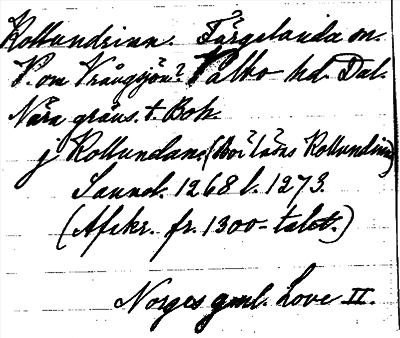 Rollundrinn. Färgelanda sn.
V. om Vrångsjön? Valbo hd. Dal.
Nära gräns. t. Boh.
j Rollundane (Bör läsas Rollundrinn)
Sannol. 1268 l. 1273.
(Afskr. fr. 1300-talet.)
Norges gml. Love II.